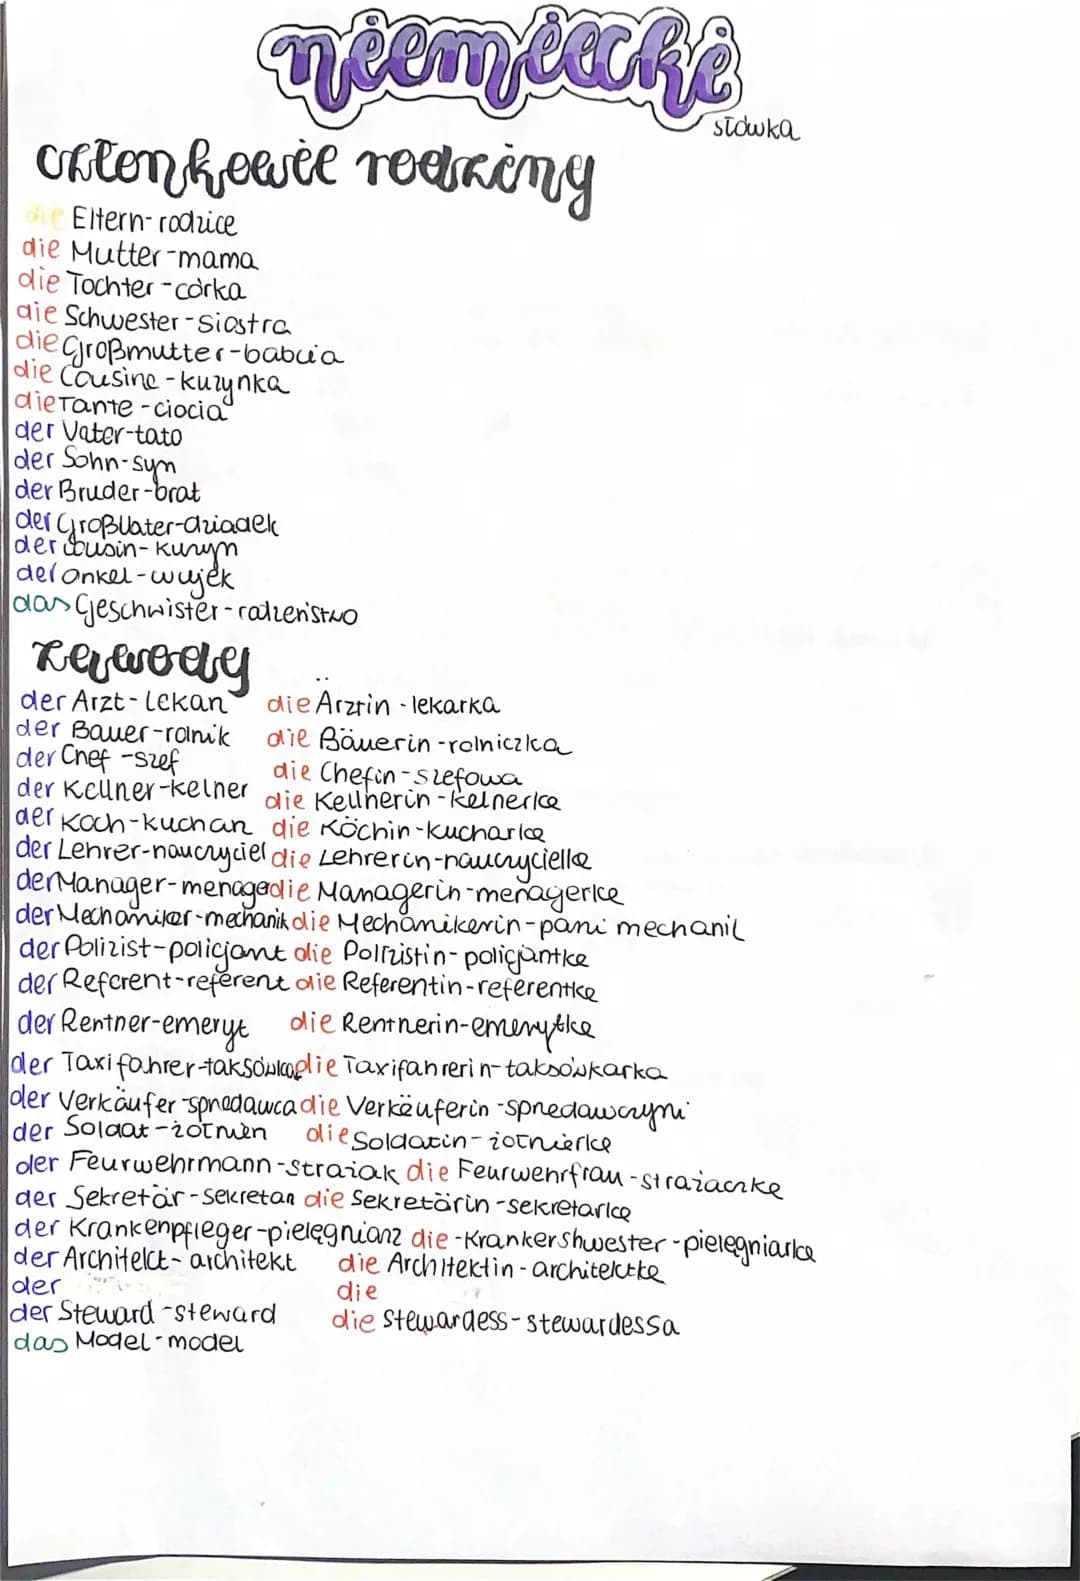 niemiecki
słówka
członkowie rodziny
die Eltern-rodzice
die Mutter-mama
die Tochter-córka
die Schwester-siostra
die Großmutter-babcia
die Cousine-kuzynka
die Tante-ciocia
der Vater-tato
der Sohn-syn
der Bruder-brat
der Großvater-dziadek
der Cousin-kuzyn
der onkel-wujek
das Geschwister-rodzeństwo
Zawody
der Arzt-lekarz die Ärztin-lekarka
der Bauer-rolnik die Bäuerin-rolniczka
der Chef-szef die Chefin-szefowa
der Kellner-kelner die Kellnerin-kelnerka
der Koch-kucharz die Köchin-kucharka
der Lehrer-nauczyciel die Lehrerin-nauczycielka
der Manager-menager die Managerin-menagerka
der Mechaniker-mechanik die Mechanikerin-pani mechanik
der Polizist-policjant die Polizistin-policjantka
der Referent-referent die Referentin-referentka
der Rentner-emeryt die Rentnerin-emerytka
der Taxifahrer-taksówkarz die Taxifahrerin-taksówkarka
der Verkäufer-sprzedawca die Verkäuferin-sprzedawczyni
der Soldat-żołnierz die Soldatin-żołnierka
der Feurwehrmann-strażak die Feurwehrfrau-strażaczka
der Sekretär-sekretarz die Sekretärin-sekretarka
der Krankenpfleger-pielęgniarz die-Krankershwester-pielęgniarka
der Architekt-architekt die Architektin-architektka
der die
der Steward-steward die Stewardess-stewardessa
das Model-model